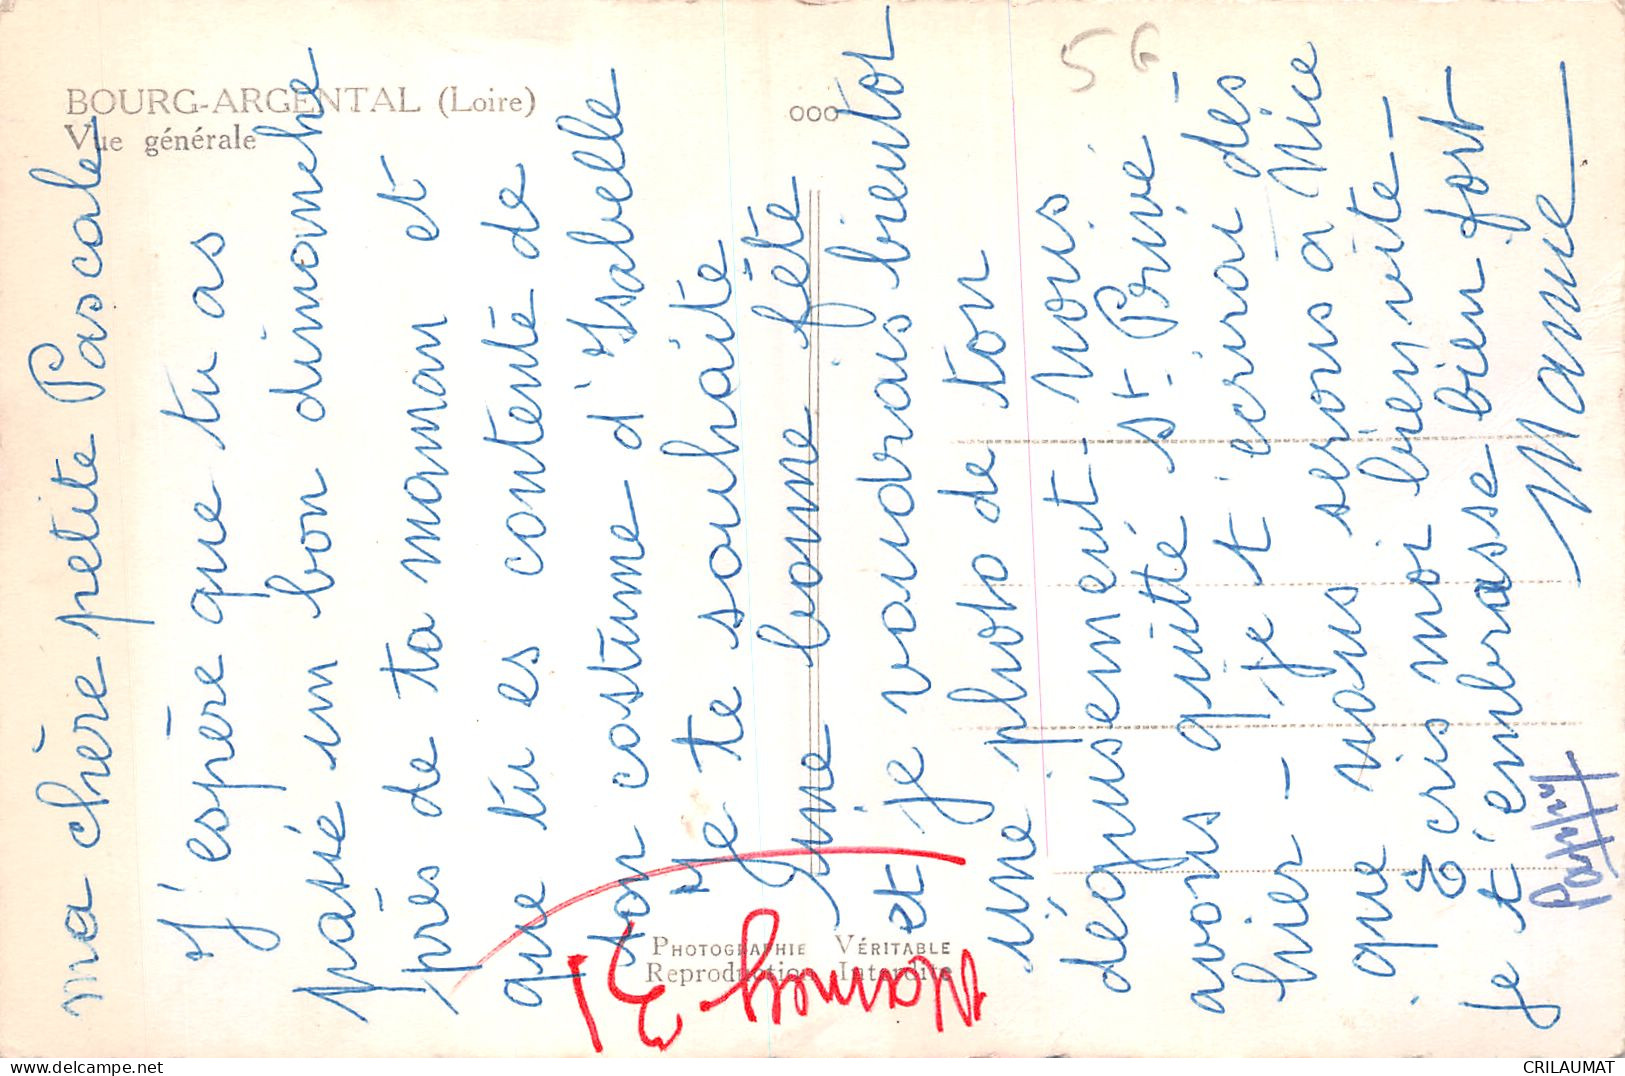 BOURG-ARGENTAL (Loire)
Vue générale
56
ma chère petite Pascale
J'espère que tu as
passé un bon dimanche
près de ta maman et
que tu es contente de
ton costume d'Isabelle
Je te souhaite
une bonne fête
et je voudrais bientot
une photo de ton
déguisement - Nous
avons quitté St. Privé
hier - je t'écrirai dès
que nous serons à Nice
Écris moi bien vite -
je t'embrasse bien fort
Mamie
PHOTOGRAPHIE VÉRITABLE
Reproduction Interdite
31
CRILAUMAT